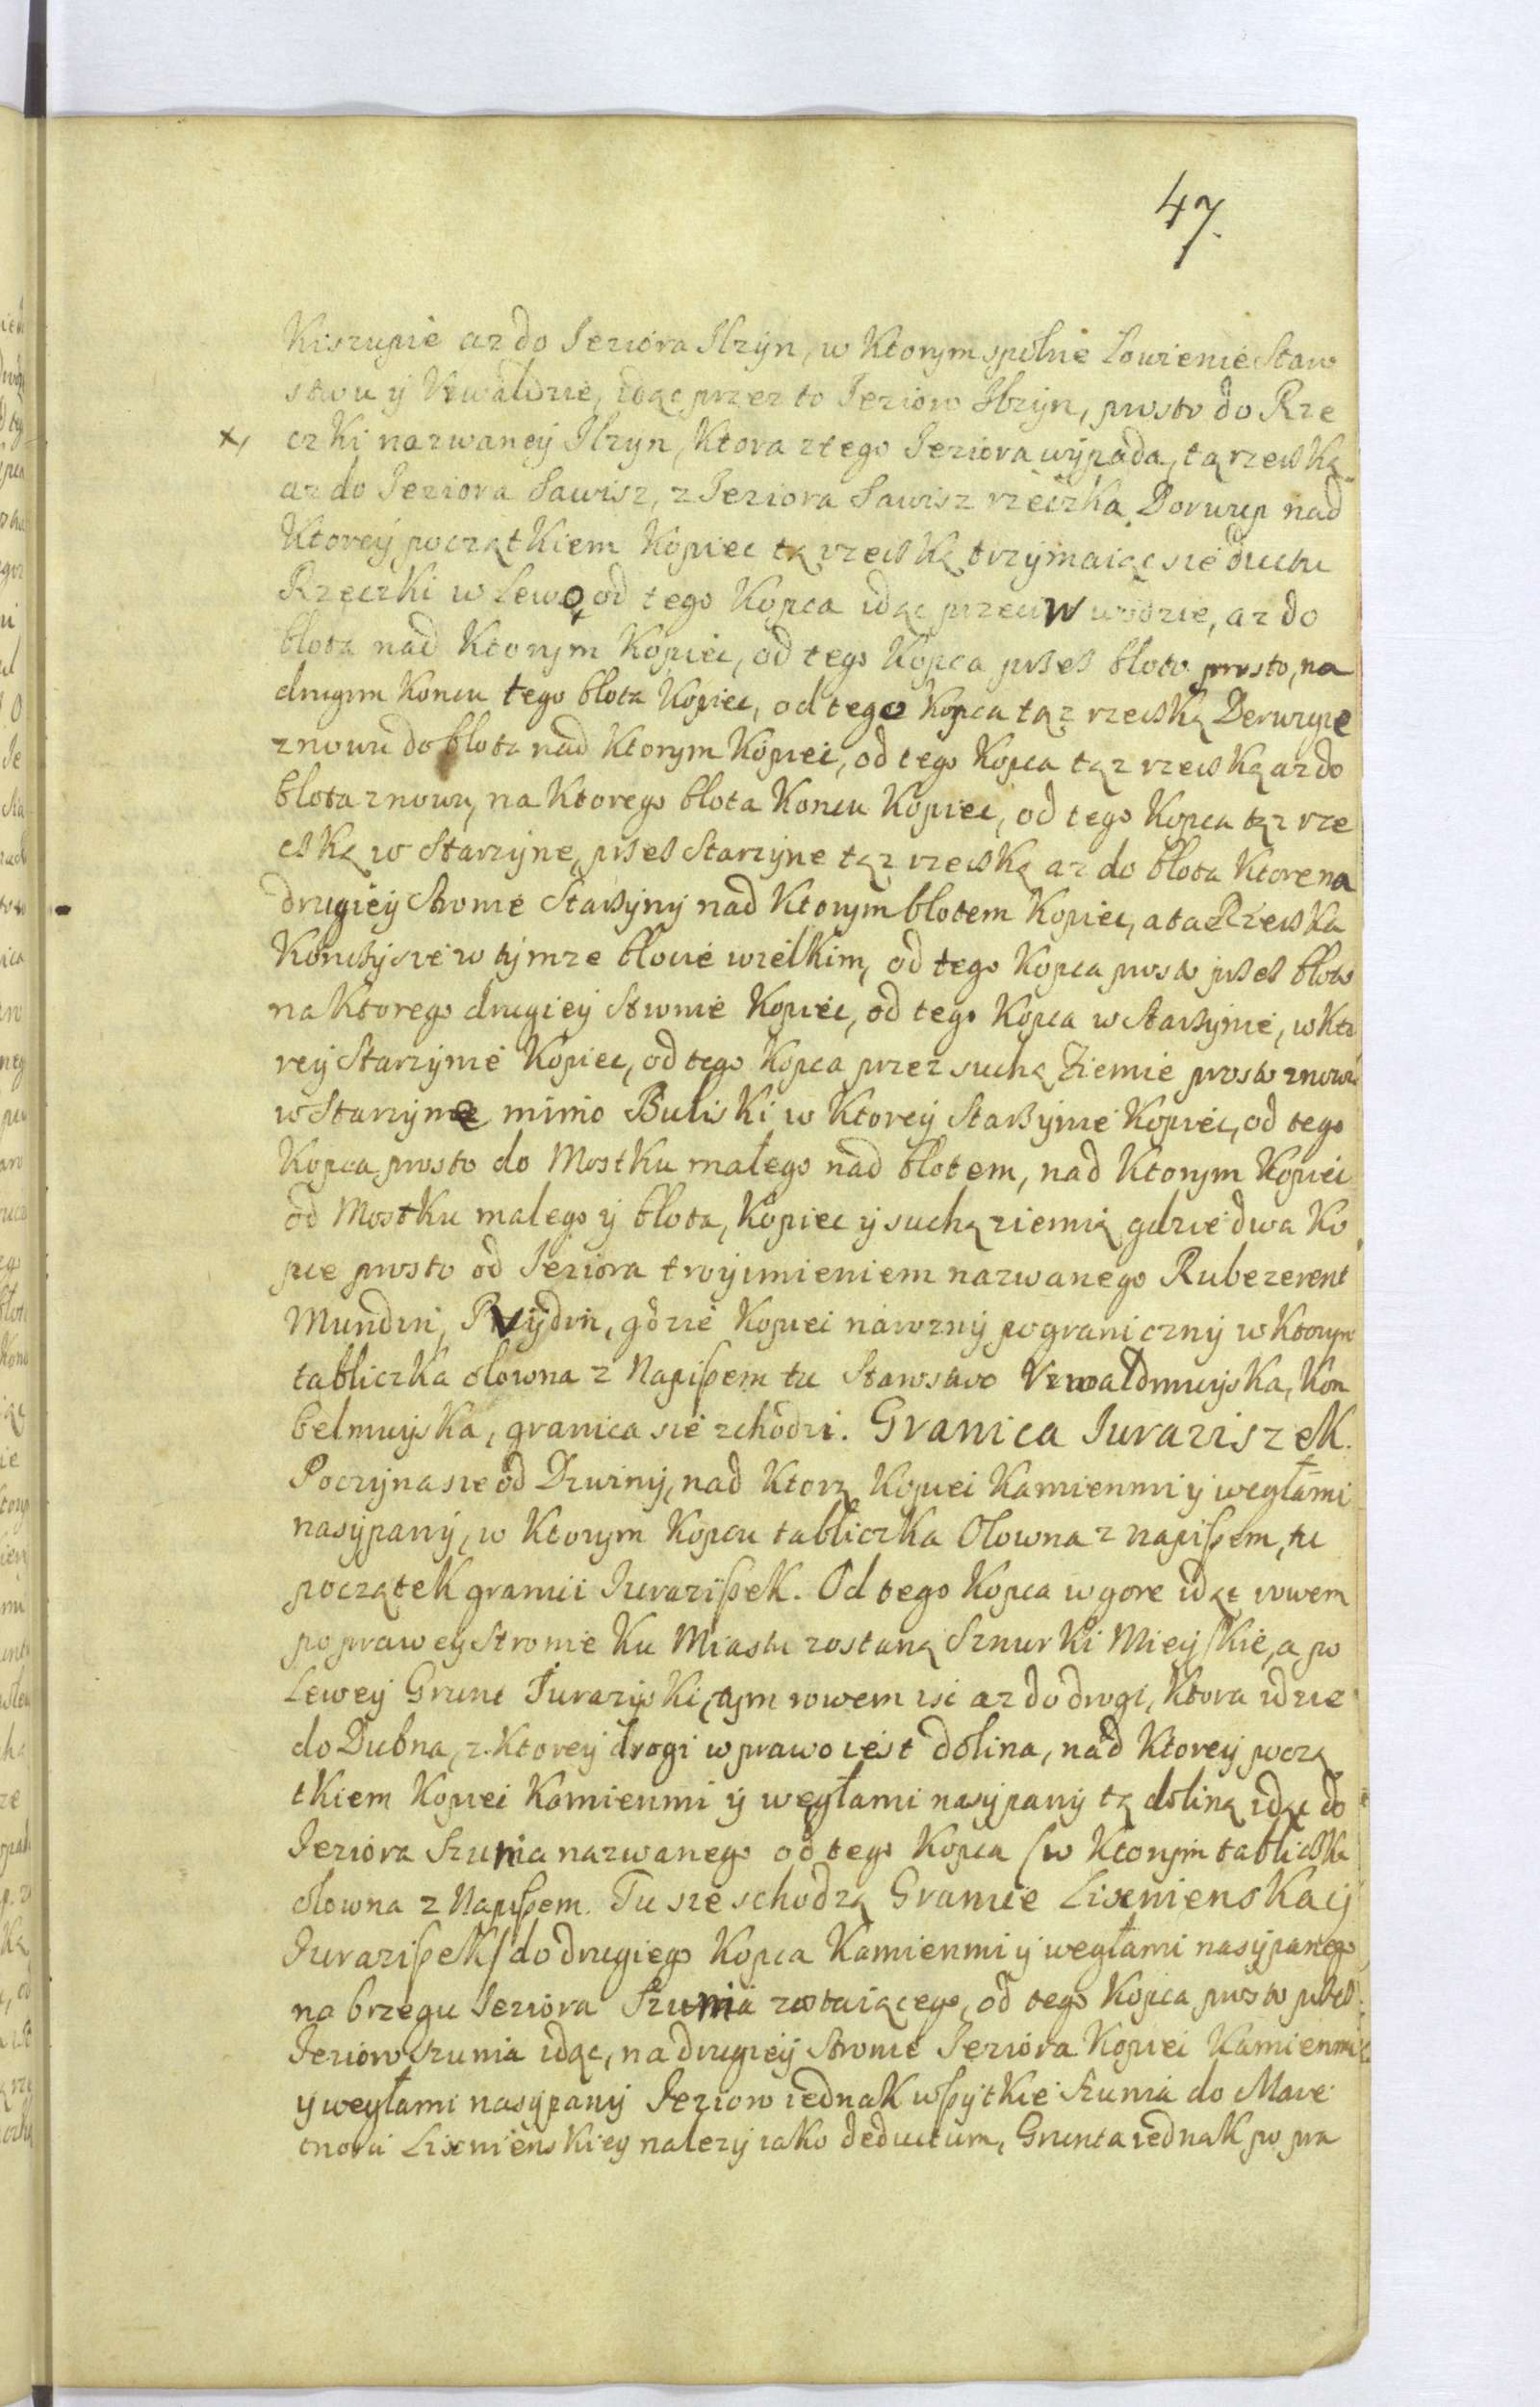 47.
Kiszupie az do Jeziora Ilzyn, w Ktorym spolnie Lowienie Staw
stwu ÿ Vzwaldzie, idąc przez to Jezioro Ilzyn, prosto do Rze
x, czki nazwaneÿ Ilzyn, Ktora z tego Jeziora wÿpada, tą rzeczką
az do Jeziora Sawisz, z Jeziora Sawisz rzeczka Dorwup nad
Ktoreÿ początkiem Kopiec tą rzeczką trzÿmaiąc sie duchu
Rzeczki w Lewo, od tego Kopca idąc przeciw wodzie, az do
blota nad Ktorym Kopiec, od tego Kopca przez bloto prosto, na
drugim Koncu tego blota Kopiec, od tego Kopca tąz rzeczką Derwupie
znowu do blota nad Ktorym Kopiec, od tego Kopca tąz rzeczką az do
blota znowu, na Ktorego blota Koncu Kopiec, od tego Kopca tąz rze
czką w Starzÿne, przez Starzÿne tąz rzeczką az do blota Ktore na
drugieÿ Stronie Starzÿnÿ nad Ktorym blotem Kopiec, a ta Rzeczka
Konczÿ sie w tÿmze blocie wielkim, od tego Kopca prosto przez bloto
na Ktorego drugieÿ Stronie Kopiec, od tego Kopca w Starzÿnie, w Kto
reÿ Starzÿnie Kopiec, od tego Kopca przez suchą Ziemie prosto znowu
w Starzÿne mimo Buliski w Ktoreÿ Starzÿnie Kopiec, od tego
Kopca prosto do Mostku małego nad blotem, nad Ktorym Kopiec
od Mostku malego ÿ blota, Kopiec ÿ suchą ziemią gdzie dwa Ko
pce prosto od Jeziora troÿimieniem nazwanego Rubezerent
Mundri, Prÿdri, gdzie Kopiec narozny pogranicznÿ w Ktorym
tabliczka olowna z Napisem tu Starostwo Vzwaldmuyska, Kon
belmuyska, granica sie zchodzi. Granica Juraziszek.
Poczÿna sie od Dzwinÿ, nad Ktorą Kopiec Kamienmi ÿ węgłami
nasÿpanÿ, w Ktorym Kopcu tabliczka Olowna z napisem, tu
początek granicÿ Juraziszek. Od tego Kopca w gore idąc rowem
po prawey Stronie Ku Miastu zostaną Sznurki Mieÿskie, a po
Leweÿ Grunt Juraziski, tym rowem isc az do drogi, Ktora idzie
do Dubna, z Ktoreÿ drogi w prawo iest dolina, nad Ktoreÿ począ
tkiem Kopiec Kamienmi ÿ węgłami nasÿpanÿ tą doliną idąc do
Jeziora Szunia nazwanego od tego Kopca (w Ktorÿm tabliczka
olowna z Napisem. Tu sie schodzą Granice Lixnienska ÿ
Juraziszek) do drugiego Kopca Kamienmi ÿ węgłami nasÿpanego
na brzegu Jeziora Szunia zostaiącego, od tego Kopca prosto przez
Jezioro Szunia idąc, na drugieÿ Stronie Jeziora Kopiec Kamienmi
ÿ węgłami nasÿpanÿ Jezioro iednak wszÿtkie Szunia do Maie
tnosci Lixnienskieÿ nalezÿ iako deductum, Grunta iednak po pra